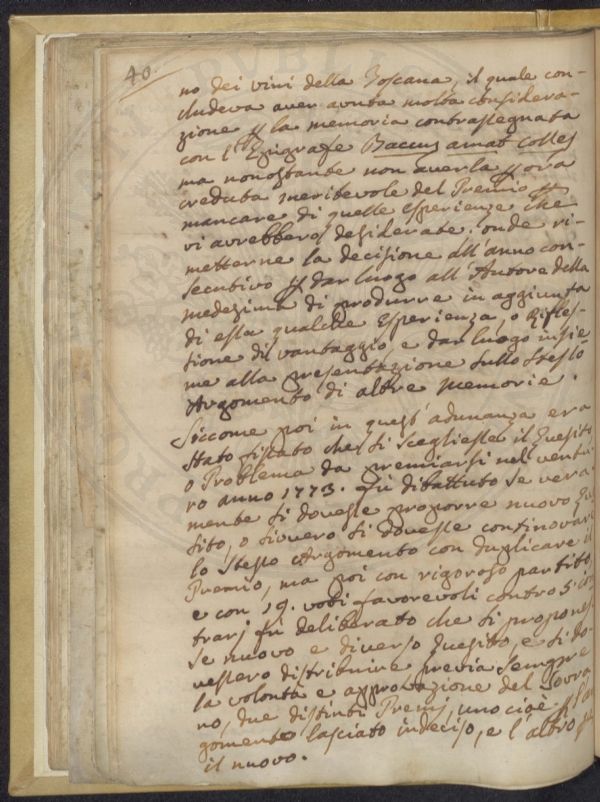 40.
no dei vini della Toscana, il quale con-
cludeva aver avuta molta considera-
zione p la memoria contrassegnata
con l'Epigrafe Baccus amat colles
ma nonostante non averla p ora
creduta meritevole del Premio p
mancare di quelle esperienze che
vi avrebbero desiderate: onde ri-
metterne la decisione all'anno con-
secutivo p dar luogo all'Autore della
medesima di produrre in aggiunta
di essa qualche Esperienza, o Rifles-
sione di vantaggio, e dar luogo insie-
me alla presentazione sullo stesso
Argomento di altre memorie.
Siccome poi in quest'adunanza era
stato fissato che si scegliesse il Quesito
o Problema da premiarsi nel ventu-
ro anno 1773. fù dibattuto se vera-
mente si dovesse proporre nuovo Que
sito, o sivvero si dovesse continovare
lo stesso Argomento con duplicare il
Premio, ma poi con rigoroso partito
e con 19. voti favorevoli contro 5 con
trarj fù deliberato che si propones
se nuovo e diverso Quesito e si do-
vessero distribuire previa sempre
la volontà e approvazione del Sovra
no, due distinti Premj, uno cioè p l'ar
gomento lasciato indeciso, e l'altro p
il nuovo.